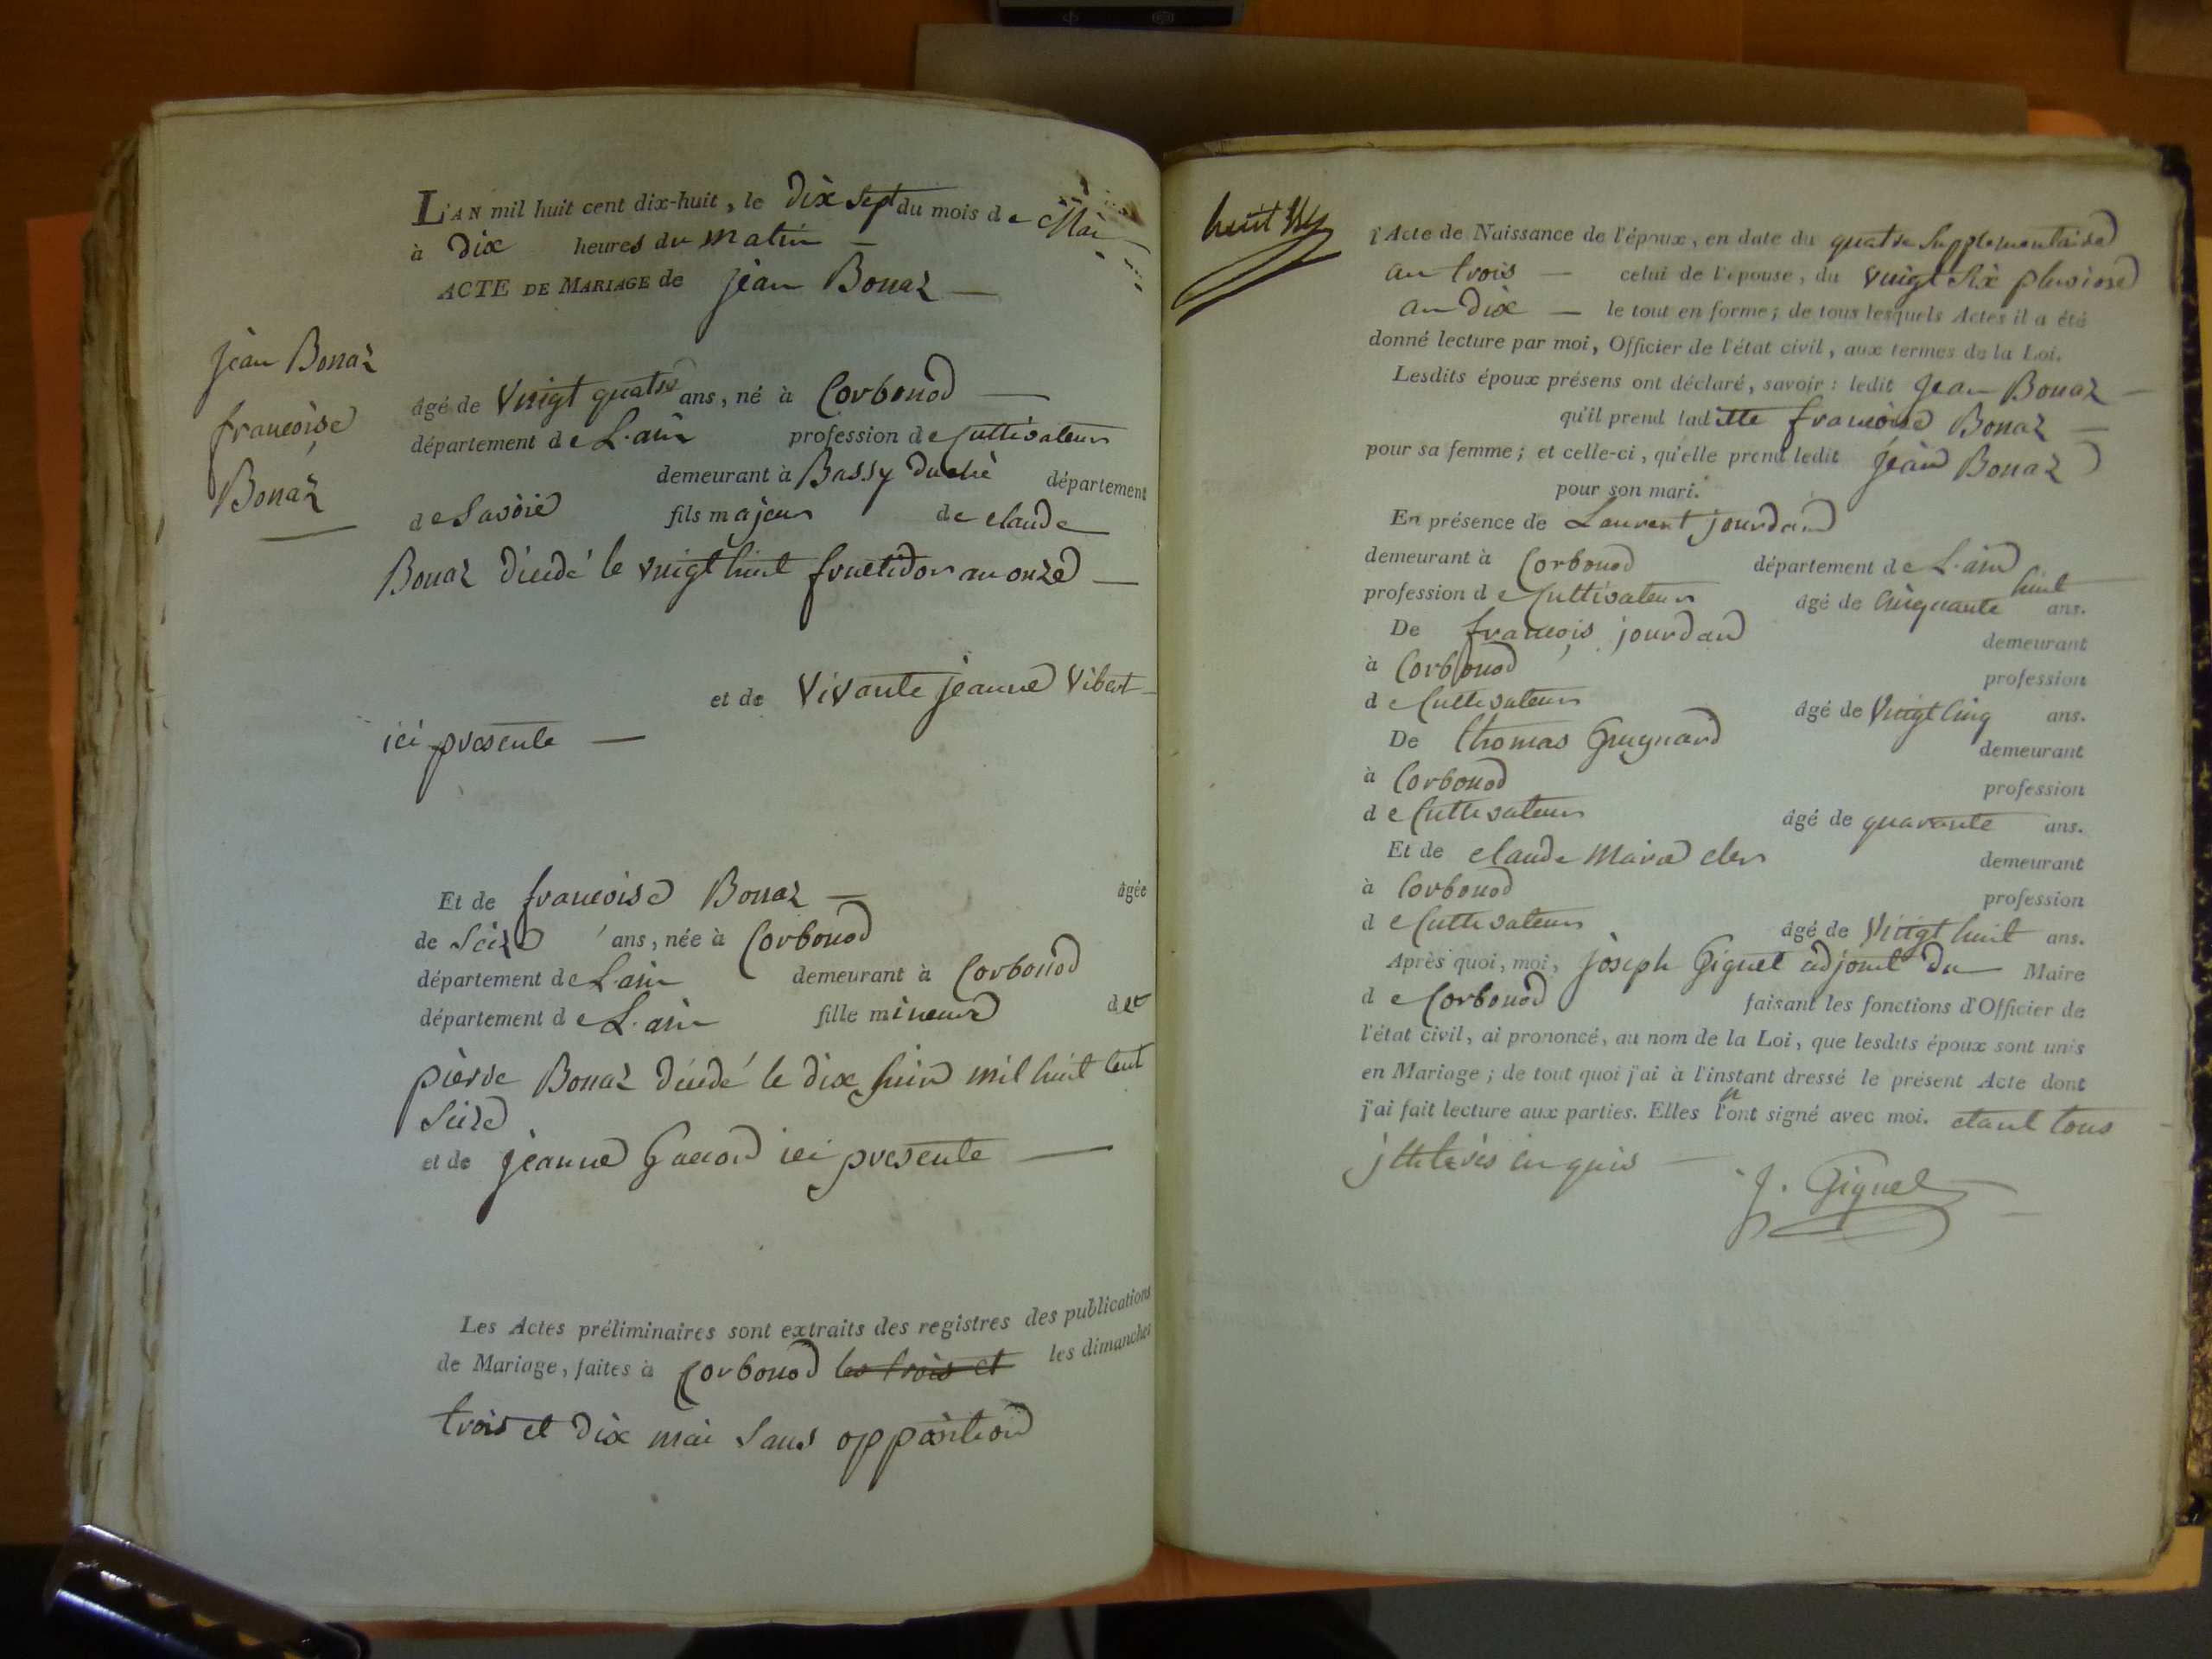 L'AN mil huit cent dix-huit, le dix sept du mois de Mai
à dix heures du matin
ACTE DE MARIAGE de jean Bonaz
jean Bonaz
francoise
Bonaz
âgé de vingt quatre ans, né à Corbonod
département de L'ain profession de Cultivateur
demeurant à Bassy duché département
de Savoie fils majeur de claude
Bonaz décédé le vingt huit fructidor an onze
et de vivante jeanne vibert
ici presente
Et de francoise Bonaz âgée
de Seize ans, née à Corbonod
département de L'ain demeurant à Corbonod
département de L'ain fille mineure de
pierre Bonaz décédé le dix juin mil huit Cent
Seize
et de jeanne ici presente
Les Actes préliminaires sont extraits des registres des publications
de Mariage, faites à Corbonod les trois et les dimanches
trois et dix mai Sans opposition
huit
l'Acte de Naissance de l'époux, en date du quatre Supplementaire
an trois celui de l'épouse, du vingt Six pluviose
an dix le tout en forme; de tous lesquels Actes il a été
donné lecture par moi, Officier de l'état civil, aux termes de la Loi.
Lesdits époux présens ont déclaré, savoir: ledit jean Bonaz
qu'il prend laditte francoise Bonaz
pour sa femme; et celle-ci, qu'elle prend ledit jean Bonaz
pour son mari.
En présence de Laurent jourdan
demeurant à Corbonod département de L'ain
profession de Cultivateur âgé de Cinquante huit ans.
De françois jourdan demeurant
à Corbonod profession
de Cultivateur âgé de vingt Cinq ans.
De thomas Guynard demeurant
à Corbonod profession
de Cultivateur âgé de quarante ans.
Et de claude Marie cler demeurant
à Corbonod profession
de Cultivateur âgé de vingt huit ans.
Après quoi, moi, joseph Giguet adjoint du Maire
de Corbonod faisant les fonctions d'Officier de
l'état civil, ai prononcé, au nom de la Loi, que lesdits époux sont unis
en Mariage; de tout quoi j'ai à l'instant dressé le présent Acte dont
j'ai fait lecture aux parties. Elles n'ont signé avec moi. etant tous
enquis
J. Giguet